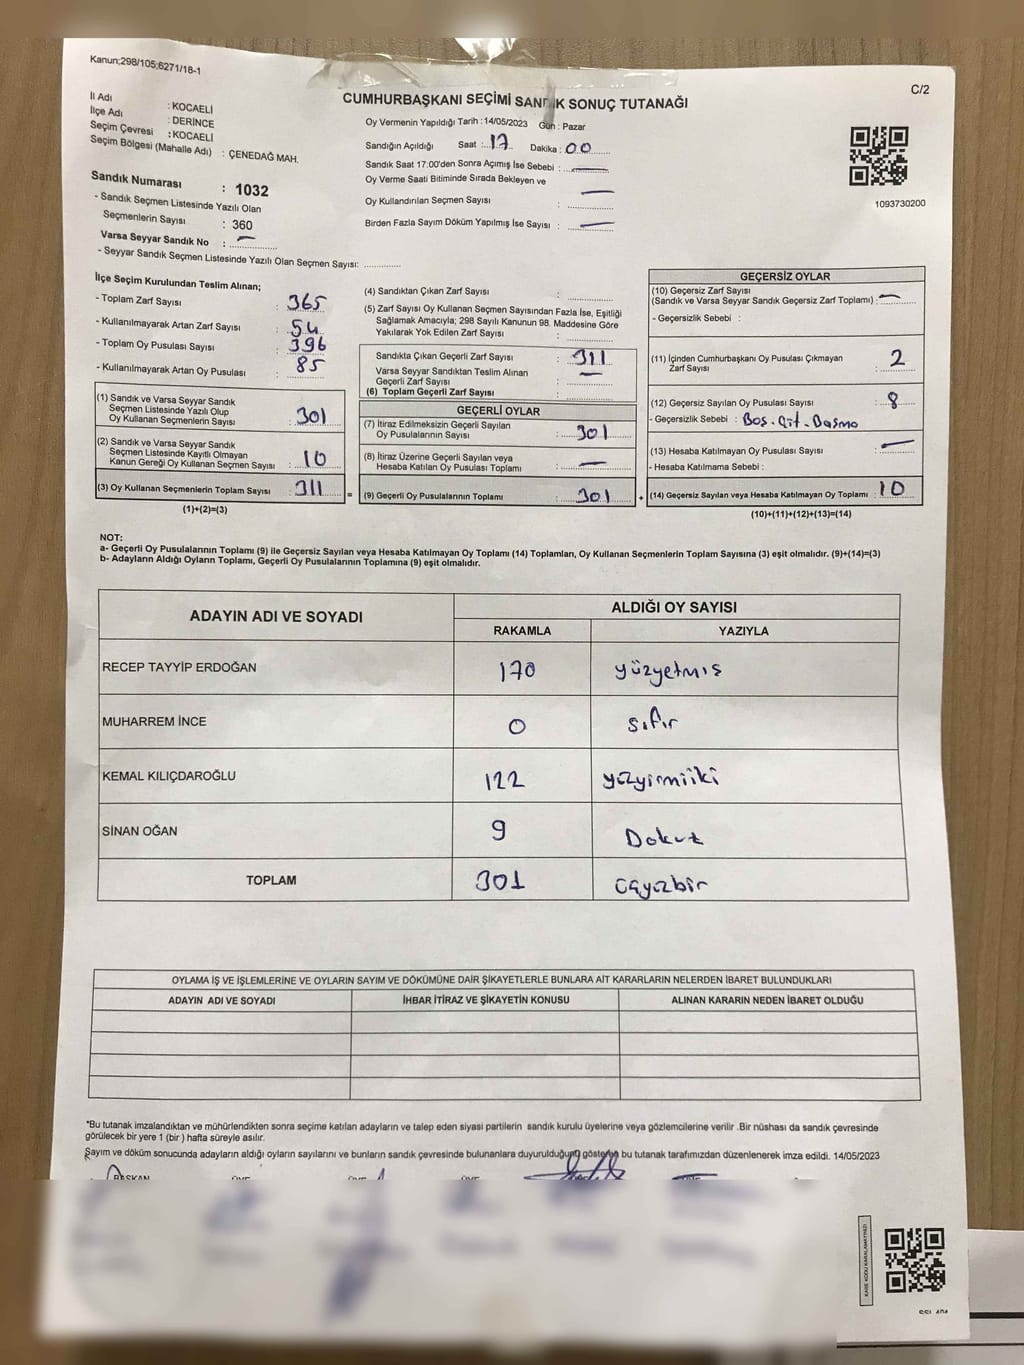 Kanun;298/105;6271/18-1
C/2
CUMHURBAŞKANI SEÇİMİ SANDIK SONUÇ TUTANAĞI
İl Adı : KOCAELİ
İlçe Adı : DERİNCE
Seçim Çevresi : KOCAELİ
Seçim Bölgesi (Mahalle Adı) : ÇENEDAĞ MAH.
Sandık Numarası : 1032
- Sandık Seçmen Listesinde Yazılı Olan
Seçmenlerin Sayısı : 360
Varsa Seyyar Sandık No : —
- Seyyar Sandık Seçmen Listesinde Yazılı Olan Seçmen Sayısı: ............
Oy Vermenin Yapıldığı Tarih : 14/05/2023 Gün : Pazar
Sandığın Açıldığı Saat : 17 Dakika : 00
Sandık Saat 17:00'den Sonra Açımış İse Sebebi : —
Oy Verme Saati Bitiminde Sırada Bekleyen ve
Oy Kullandırılan Seçmen Sayısı : —
Birden Fazla Sayım Döküm Yapılmış İse Sayısı : —
1093730200
İlçe Seçim Kurulundan Teslim Alınan;
- Toplam Zarf Sayısı : 365
- Kullanılmayarak Artan Zarf Sayısı : 54
- Toplam Oy Pusulası Sayısı : 396
- Kullanılmayarak Artan Oy Pusulası : 85
(1) Sandık ve Varsa Seyyar Sandık
Seçmen Listesinde Yazılı Olup
Oy Kullanan Seçmenlerin Sayısı : 301
(2) Sandık ve Varsa Seyyar Sandık
Seçmen Listesinde Kayıtlı Olmayan
Kanun Gereği Oy Kullanan Seçmen Sayısı : 10
(3) Oy Kullanan Seçmenlerin Toplam Sayısı : 311
(1)+(2)=(3)
(4) Sandıktan Çıkan Zarf Sayısı :
(5) Zarf Sayısı Oy Kullanan Seçmen Sayısından Fazla İse, Eşitliği
Sağlamak Amacıyla; 298 Sayılı Kanunun 98. Maddesine Göre
Yakılarak Yok Edilen Zarf Sayısı :
Sandıkta Çıkan Geçerli Zarf Sayısı : 311
Varsa Seyyar Sandıktan Teslim Alınan
Geçerli Zarf Sayısı : —
(6) Toplam Geçerli Zarf Sayısı :
GEÇERLİ OYLAR
(7) İtiraz Edilmeksizin Geçerli Sayılan
Oy Pusulalarının Sayısı : 301
(8) İtiraz Üzerine Geçerli Sayılan veya
Hesaba Katılan Oy Pusulası Toplamı : —
= (9) Geçerli Oy Pusulalarının Toplamı : 301
GEÇERSİZ OYLAR
(10) Geçersiz Zarf Sayısı
(Sandık ve Varsa Seyyar Sandık Geçersiz Zarf Toplamı) : —
- Geçersizlik Sebebi :
(11) İçinden Cumhurbaşkanı Oy Pusulası Çıkmayan
Zarf Sayısı : 2
(12) Geçersiz Sayılan Oy Pusulası Sayısı : 8
- Geçersizlik Sebebi : Boş.
(13) Hesaba Katılmayan Oy Pusulası Sayısı : —
- Hesaba Katılmama Sebebi :
+ (14) Geçersiz Sayılan veya Hesaba Katılmayan Oy Toplamı : 10
(10)+(11)+(12)+(13)=(14)
NOT:
a- Geçerli Oy Pusulalarının Toplamı (9) ile Geçersiz Sayılan veya Hesaba Katılmayan Oy Toplamı (14) Toplamları, Oy Kullanan Seçmenlerin Toplam Sayısına (3) eşit olmalıdır. (9)+(14)=(3)
b- Adayların Aldığı Oyların Toplamı, Geçerli Oy Pusulalarının Toplamına (9) eşit olmalıdır.
ADAYIN ADI VE SOYADI ALDIĞI OY SAYISI
RAKAMLA YAZIYLA
RECEP TAYYİP ERDOĞAN 170 yüzyetmiş
MUHARREM İNCE 0 sıfır
KEMAL KILIÇDAROĞLU 122 yüzyirmiiki
SİNAN OĞAN 9 Dokuz
TOPLAM 301 üçyüzbir
OYLAMA İŞ VE İŞLEMLERİNE VE OYLARIN SAYIM VE DÖKÜMÜNE DAİR ŞİKAYETLERLE BUNLARA AİT KARARLARIN NELERDEN İBARET BULUNDUKLARI
ADAYIN ADI VE SOYADI İHBAR İTİRAZ VE ŞİKAYETİN KONUSU ALINAN KARARIN NEDEN İBARET OLDUĞU
*Bu tutanak imzalandıktan ve mühürlendikten sonra seçime katılan adayların ve talep eden siyasi partilerin sandık kurulu üyelerine veya gözlemcilerine verilir .Bir nüshası da sandık çevresinde
görülecek bir yere 1 (bir ) hafta süreyle asılır.
Sayım ve döküm sonucunda adayların aldığı oyların sayılarını ve bunların sandık çevresinde bulunanlara duyurulduğunu gösteren bu tutanak tarafımızdan düzenlenerek imza edildi. 14/05/2023
BAŞKAN
KARE KODU KARALAMAYINIZ!